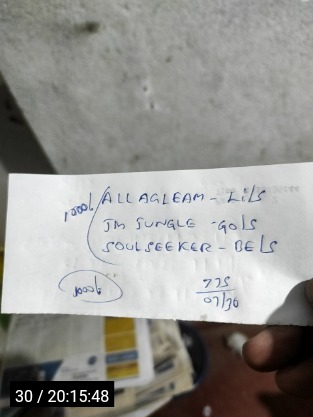 1000/ ALL AGLEAM - Lils
JM JUNGLE - Gols
SOULSEEKER - BEls
1000/
775
07/70
30 / 20:15:48